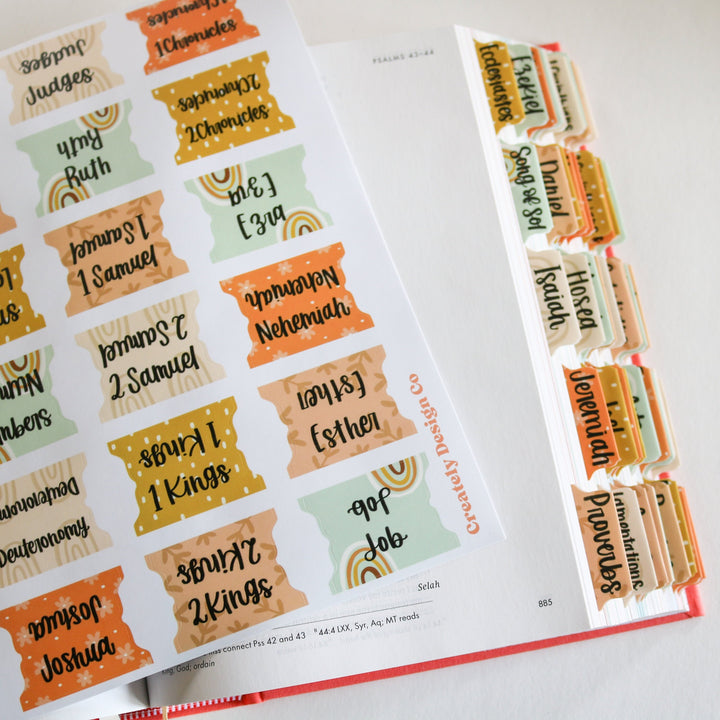 Judges
Judges
Ruth
Ruth
1 Samuel
1 Samuel
2 Samuel
2 Samuel
1 Kings
1 Kings
2 Kings
2 Kings
1 Chronicles
1 Chronicles
2 Chronicles
2 Chronicles
Ezra
Ezra
Nehemiah
Nehemiah
Esther
Esther
Job
Job
Numbers
Deuteronomy
Deuteronomy
Joshua
Joshua
Creately Design Co
PSALMS 43–44
Ecclesiastes
Ezekiel
Song of Sol
Daniel
Isaiah
Hosea
Jeremiah
Joel
Proverbs
Lamentations
Selah
885
connect Pss 42 and 43 44:4 LXX, Syr, Aq; MT reads
King, God; ordain